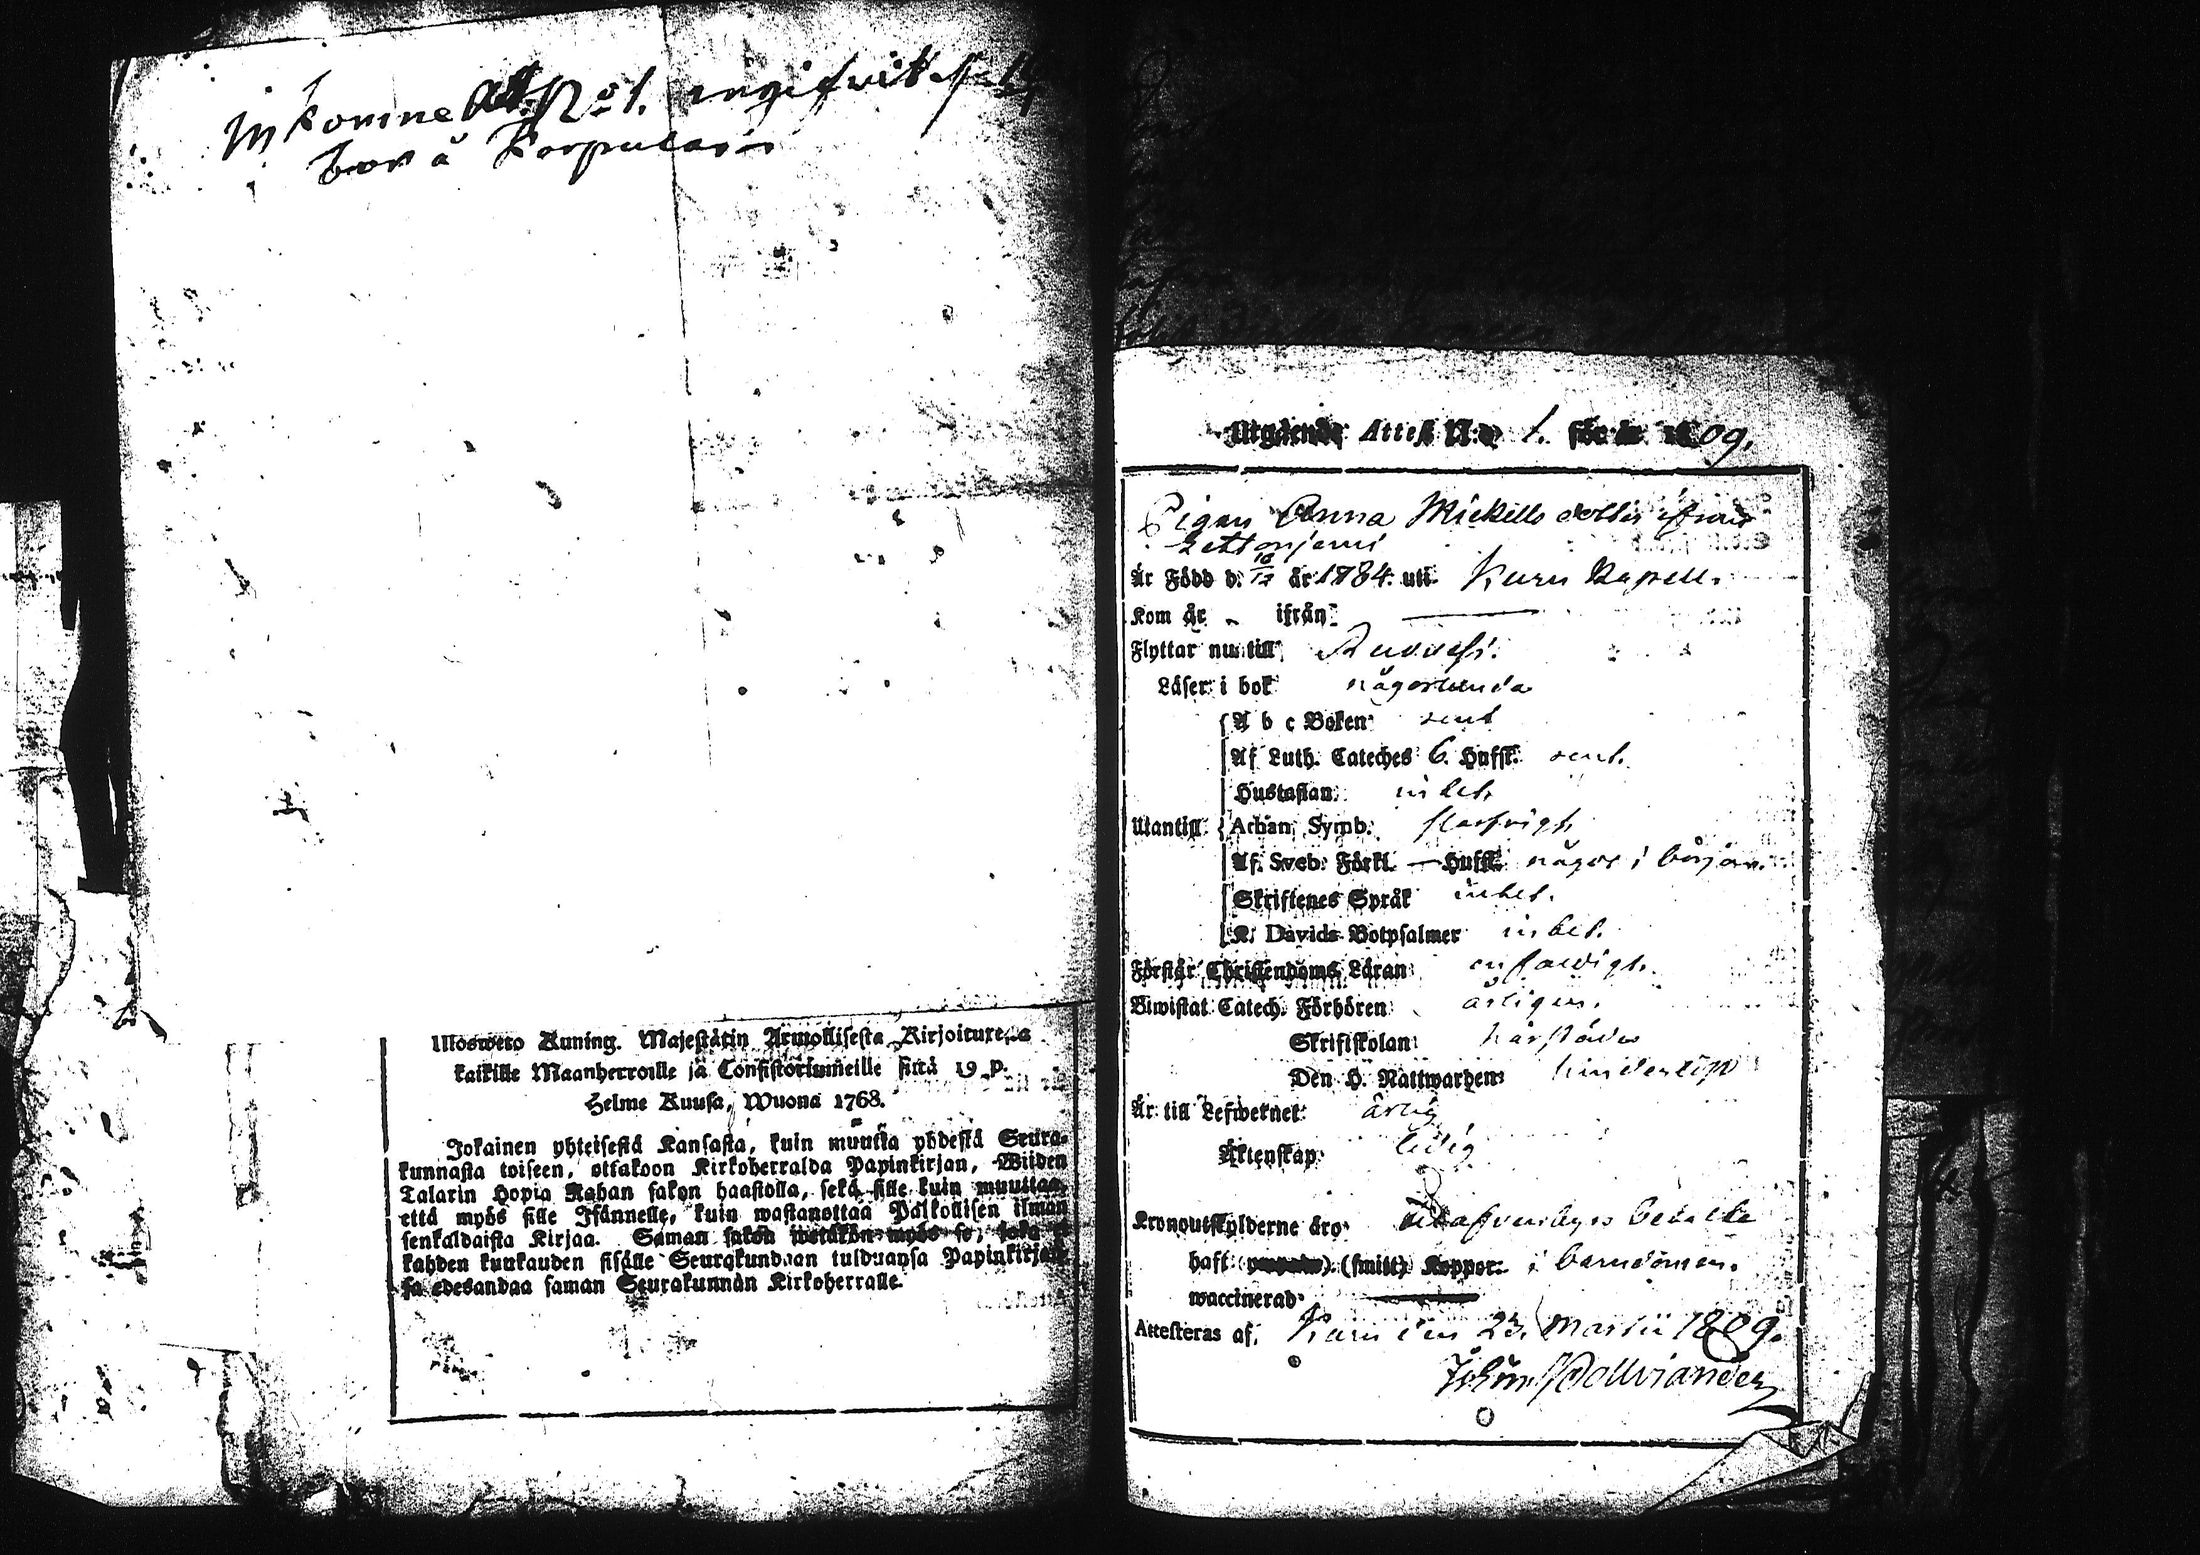 Inkomne Att. No 1. ingifvit
bor å Korpula
Ulosweto Kuning. Majestätin Armollisesta Kirjoituxesta
kaikille Maanherroille ja Consistoriumeille siitä 19 p.
Helme Kuusa, Wuona 1768.
Jokainen yhteisestä Kansasta, kuin muutta yhdestä Seura-
kunnasta toiseen, ottakoon Kirkoherralda Papinkirjan, Wiiden
Talarin Hopia Rahan sakon haastolla, sekä sille kuin muuttaa,
että myös sille Isännelle, kuin wastanottaa Palkollisen ilman
senkaldaista Kirjaa. Saman sakon wetäkön myös se, joka ei
kahden kuukauden sisälle Seurakundaan tulduansa Papinkirja
sa edesandaa saman Seurakunnan Kirkoherralle.
Utgående Attest N:o 1. för år 1809.
Pigan Anna Mickells dotter ifrån
Är Född d. 18/12 år 1784. uti Kuru Kapell.
Kom år - ifrån —
Flyttar nu till Ruovesi.
Läser i bok någorlunda
A b c Boken rent
Af Luth. Cateches 6. Hufst. rent.
Hustaflan intet.
Utantill Athan. Symb. slarfvigt
Af Sveb. Förkl. — Hufst. något i början.
Skriftenes Språk intet.
K. Davids Botpsalmer intet.
Förstår Christendoms Läran enfaldigt.
Biwistat Catech. Förhören årligen.
Skriftskolan härstädes
Den H. Nattwarden hinderlöst
Är till Lefwernet ärlig
Äktenskap ledig
Kronoutskylderne äro betalte
haft (smitt) Koppor i barndomen.
waccinerad —
Attesteras af, Kuru den 23. Martii 1809.
Johan Pollviander